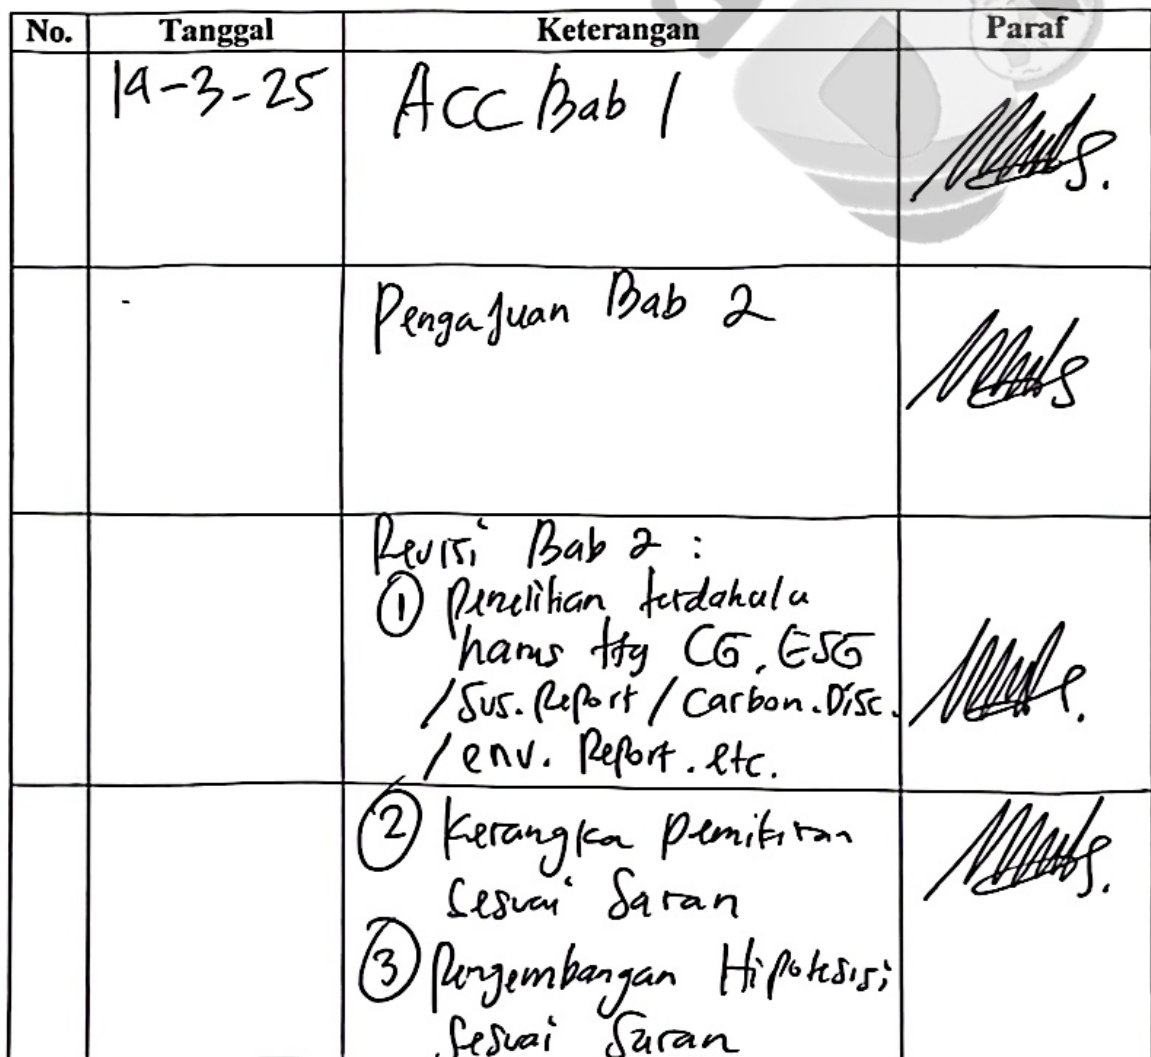 No. Tanggal Keterangan Paraf
19-3-25 ACC Bab 1
Pengajuan Bab 2
Revisi Bab 2 :
① Penelitian terdahulu
harus ttg CG, ESG
/ Sus. Report / Carbon. Disc.
/ env. Report. etc.
② Kerangka Pemikiran
Sesuai Saran
③ Pengembangan Hipotesisi
Sesuai Saran